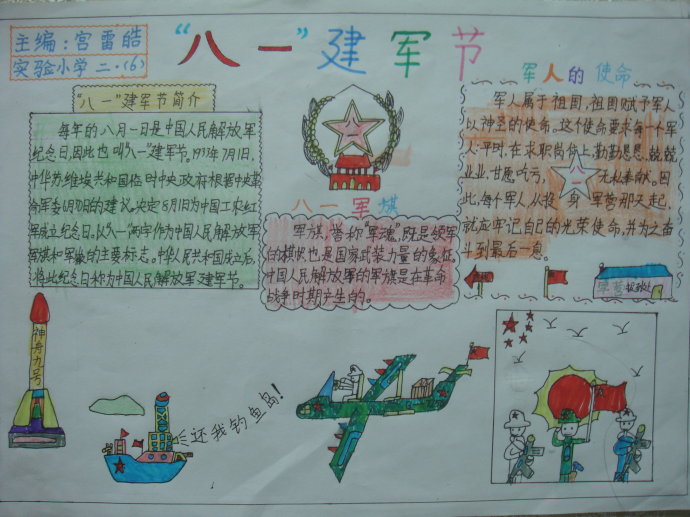 主编:宫雷皓
实验小学 二·(6)
“八一”建军节
“八一”建军节简介
每年的八月一日是中国人民解放军
纪念日,因此也叫“八一”建军节。1933年7月1日,
中华苏维埃共和国临时中央政府根据中央革
命军委6月30日的建议,决定8月1日为中国工农红
军成立纪念日,以“八一”两字作为中国人民解放军
军旗和军徽的主要标志。中华人民共和国成立后,
将此纪念日称为中国人民解放军建军节。
八一
八一军旗
军旗,誉称“军魂”,既是领军
的旗帜也是国家武装力量的象征,
中国人民解放军的军旗是在革命
战争时期产生的。
军人的使命
军人属于祖国,祖国赋予军人
以神圣的使命。这个使命要求每一个军
人:平时,在求职岗位上勤勤恳恳、兢兢
业业,甘愿吃亏, 无私奉献。因
八一
此,每个军人从投身军营那天起,
就应牢记自己的光荣使命,并为之奋
斗到最后一息。
神舟九号
还我钓鱼岛!